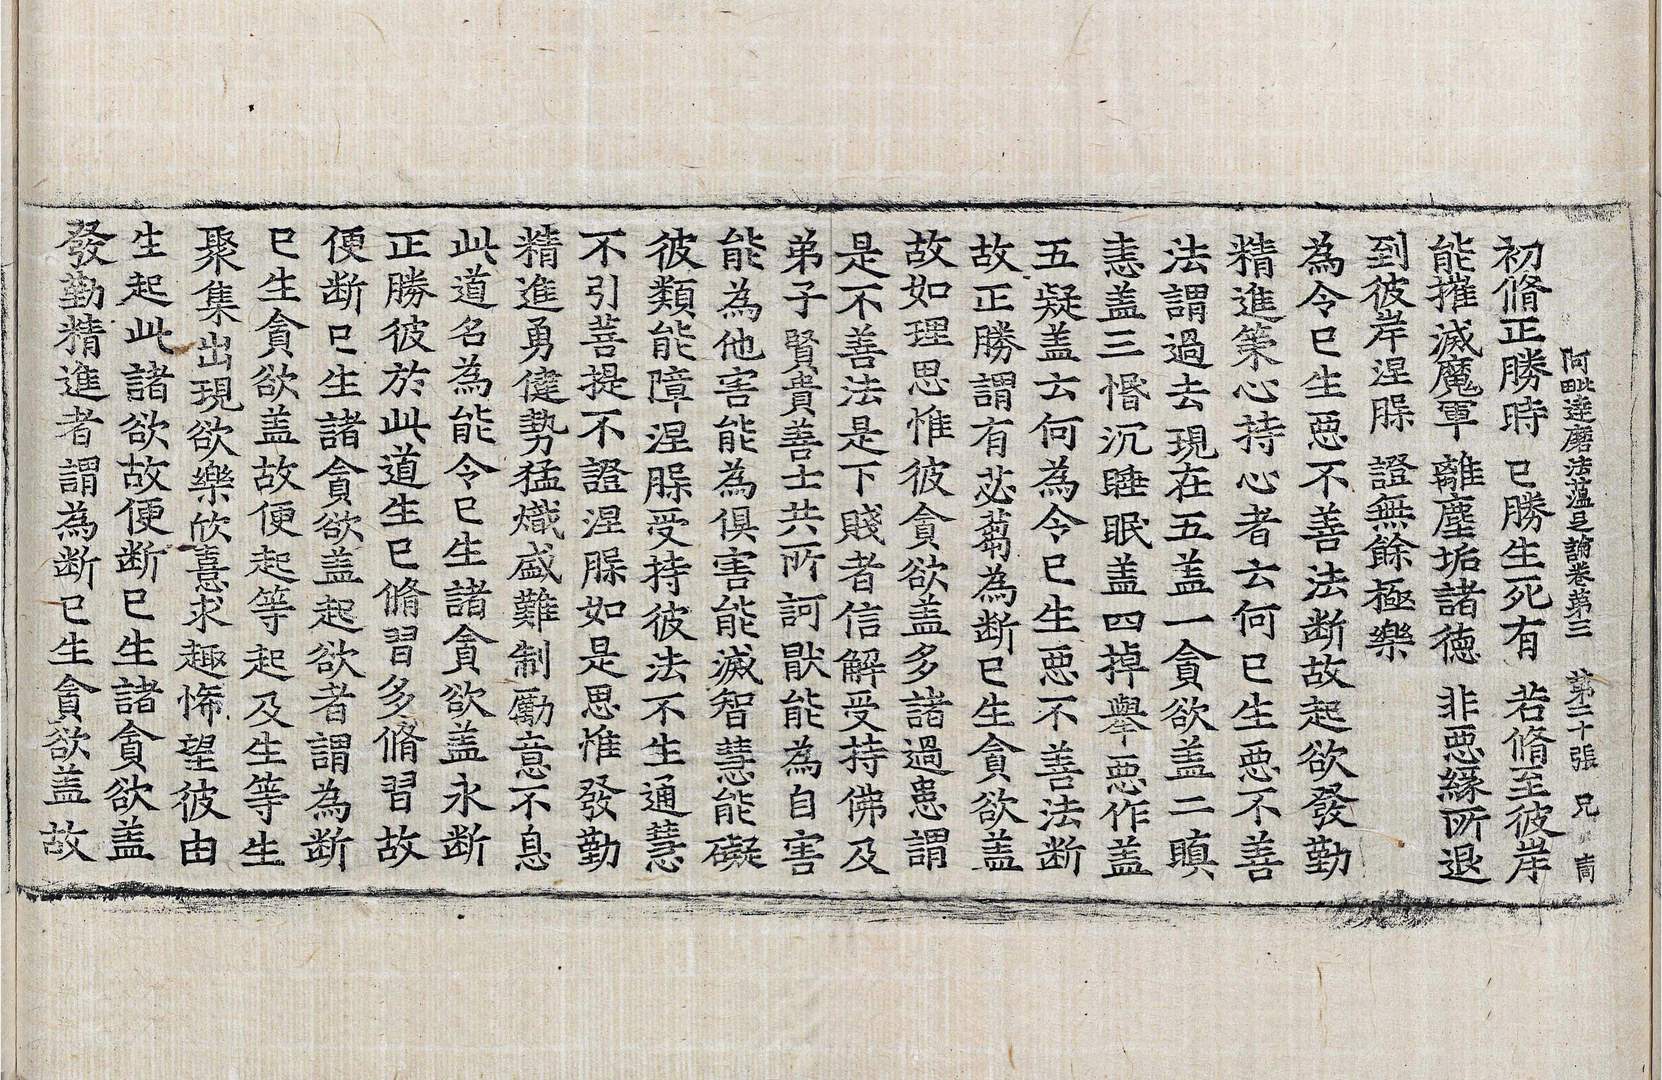 阿毗達磨法蘊足論卷第三 第二十張 兄
初脩正勝時 已勝生死有 若脩至彼岸
能摧滅魔軍 離塵垢諸德 非惡緣所退
到彼岸涅槃 證無餘極樂
為令已生惡不善法断故起欲發勤
精進策心持心者云何已生惡不善
法謂過去現在五盖一貪欲盖二瞋
恚盖三惛沉睡眠盖四掉舉惡作盖
五疑盖云何為令已生惡不善法断
故正勝謂有苾蒭為断已生貪欲盖
故如理思惟彼貪欲盖多諸過患謂
是不善法是下賤者信解受持佛及
弟子賢貴善士共所訶猒能為自害
能為他害能為俱害能滅智慧能礙
彼類能障涅槃受持彼法不生通慧
不引菩提不證涅槃如是思惟發勤
精進勇健勢猛熾盛難制勵意不息
此道名為能令已生諸貪欲盖永断
正勝彼於此道生已脩習多脩習故
便断已生諸貪欲盖起欲者謂為断
已生貪欲盖故便起等起及生等生
聚集出現欲樂欣憙求趣悕望彼由
生起此諸欲故便断已生諸貪欲盖
發勤精進者謂為断已生貪欲盖故